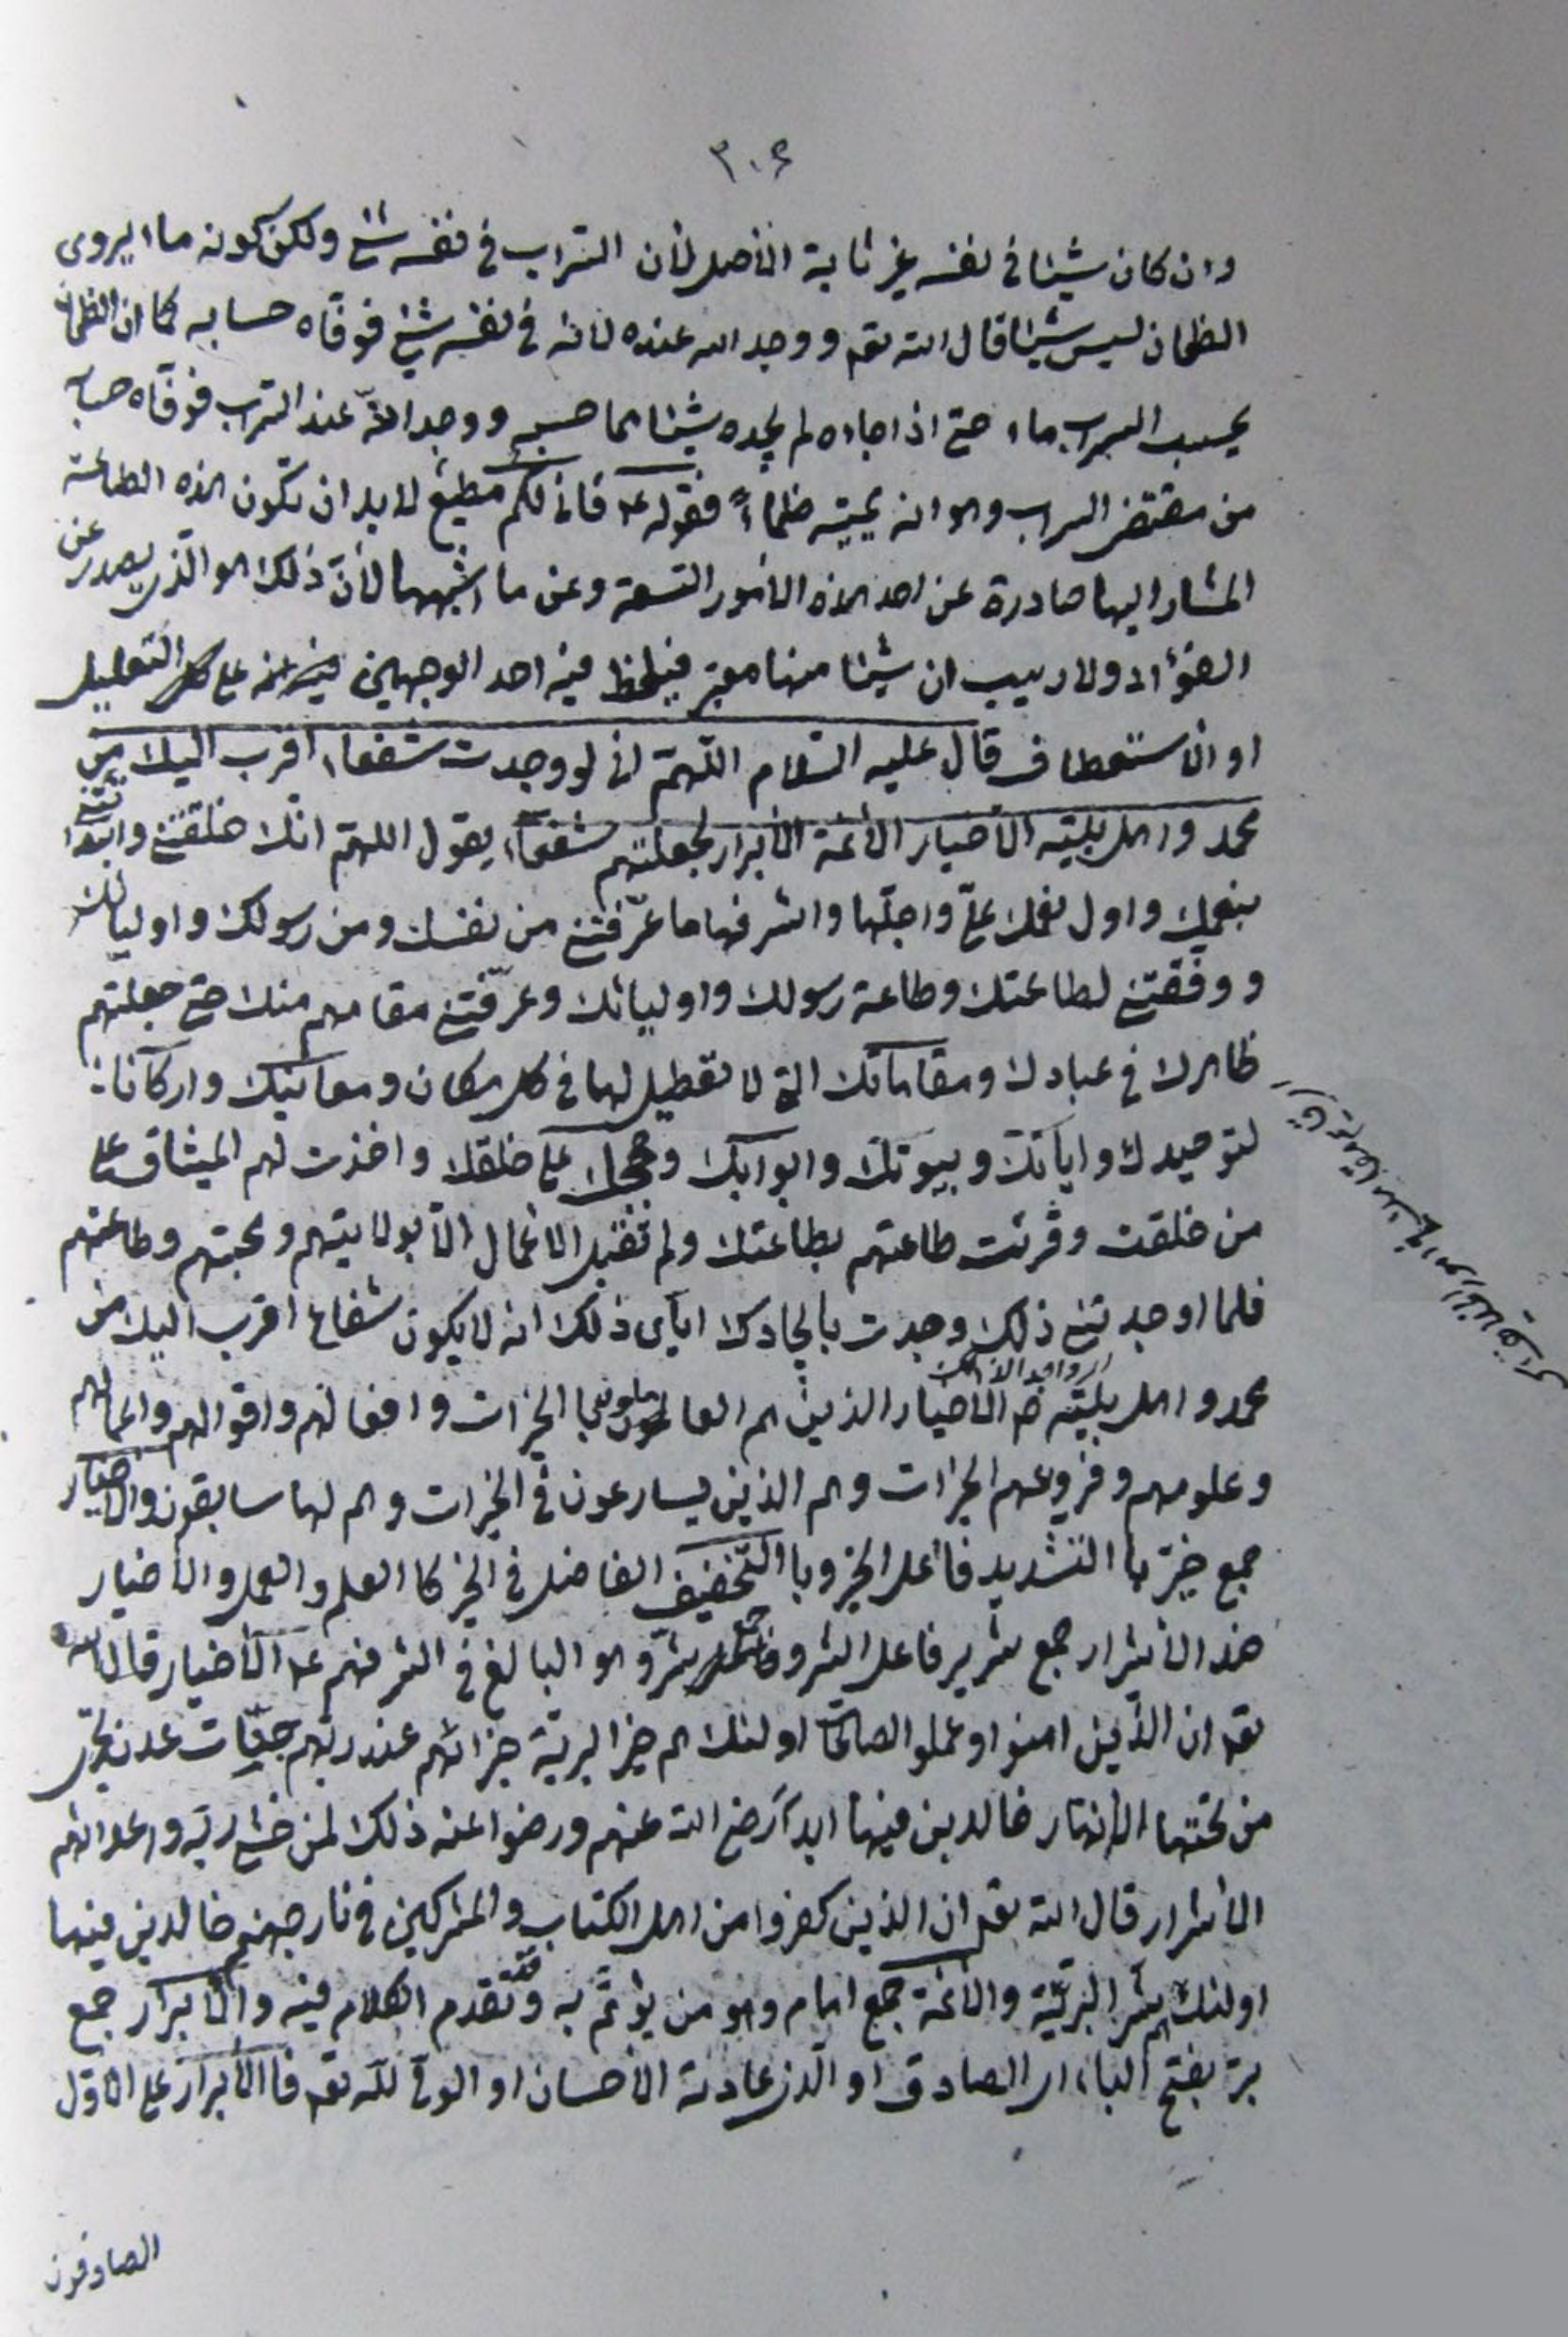 ٣٠۶
وان كان شيئا في نفسه غير ثابتة الأصل لأن السّراب في نفسه شئ ولكن كونه ماء يروى
الظمان ليس شيئا قال الله تعـ ووجد الله عنده لانه في نفسه شئ فوفّاه حسابه كما ان الظمان
يحسب السراب ماء حتى اذا جاءه لم يجده شيئا كما حسبه ووجد الله عند السّراب فوفّاه حسابه
من مقتضى السراب وهو انه يميته ظماءً فقوله ع فاني لكم مطيع لا بد ان تكون هذه الطاعة
المشار اليها صادرة عن احد هذه الامور التسعة وعن ما اشبهها لأنّ ذلك هو الّذي يصدر عن
الفؤاد ولا ريب ان شيئا منها معتبر فيلحظ فيه احد الوجهين على التعليل
او الاستعطاف قال عليه السّلام اللّهمّ اني لو وجدت شفعاء اقرب اليك من
محمد واهل بيته الأخيار الأئمة الأبرار لجعلتهم شفعائي يقول اللهم انّك خلقتني وابتدأتني
بنعمك واول نعمك عليّ واجلّها واشرفها ما عرّفتني من نفسك ومن رسولك واوليائك
ووفّقتني لطاعتك وطاعة رسولك واوليائك وعرّفتني مقامهم منك حتى جعلتهم
ظاهرك في عبادك ومقاماتك التي لا تعطيل لها في كل مكان ومعانيك واركانا
لتوحيدك واياتك وبيوتك وابوابك وحججك على خلقك واخذت لهم الميثاق على
من خلقت وقرنت طاعتهم بطاعتك ولم تقبل الاعمال الّا بولايتهم ومحبتهم وطاعتهم
فلما اوجدتني ذلك وجدت بايجادك ايّاى ذلك انه لا يكون شفعاء اقرب اليك من
محمد واهل بيته صه الأخيار الذين هم العاملون بالخيرات وافعالهم واقوالهم واعمالهم
وعلومهم وفروعهم الخيرات وهم الذين يسارعون في الخيرات وهم لها سابقون والأخيار
جمع خيّر بالتشديد فاعل الخير وبالتّخفيف الفاضل في الخير كالعلم والعمل والأخيار
ضد الأشرار جمع شرير فاعل الشر وهو البالغ في الشر فهم ع الأخيار قال الله
تعـ ان الّذين امنوا وعملوا الصالحات اولئك هم خير البريّة جزائهم عند ربّهم جنّات عدن تجرى
من تحتها الأنهار خالدين فيها ابداً رضى الله عنهم ورضوا عنه ذلك لمن خشى ربّه واعدائهم
الأشرار قال الله تعـ ان الذين كفروا من اهل الكتاب والمشركين في نار جهنم خالدين فيها
اولئك هم شر البريّة والأئمة جمع امام وهو من يؤتمّ به وقد تقدم الكلام فيه والأبرار جمع
برّ بفتح الباء اى الصادق او الّذى عادته الأحسان او الوفى لله تعـ فالأبرار على الأوّل
الصادقون